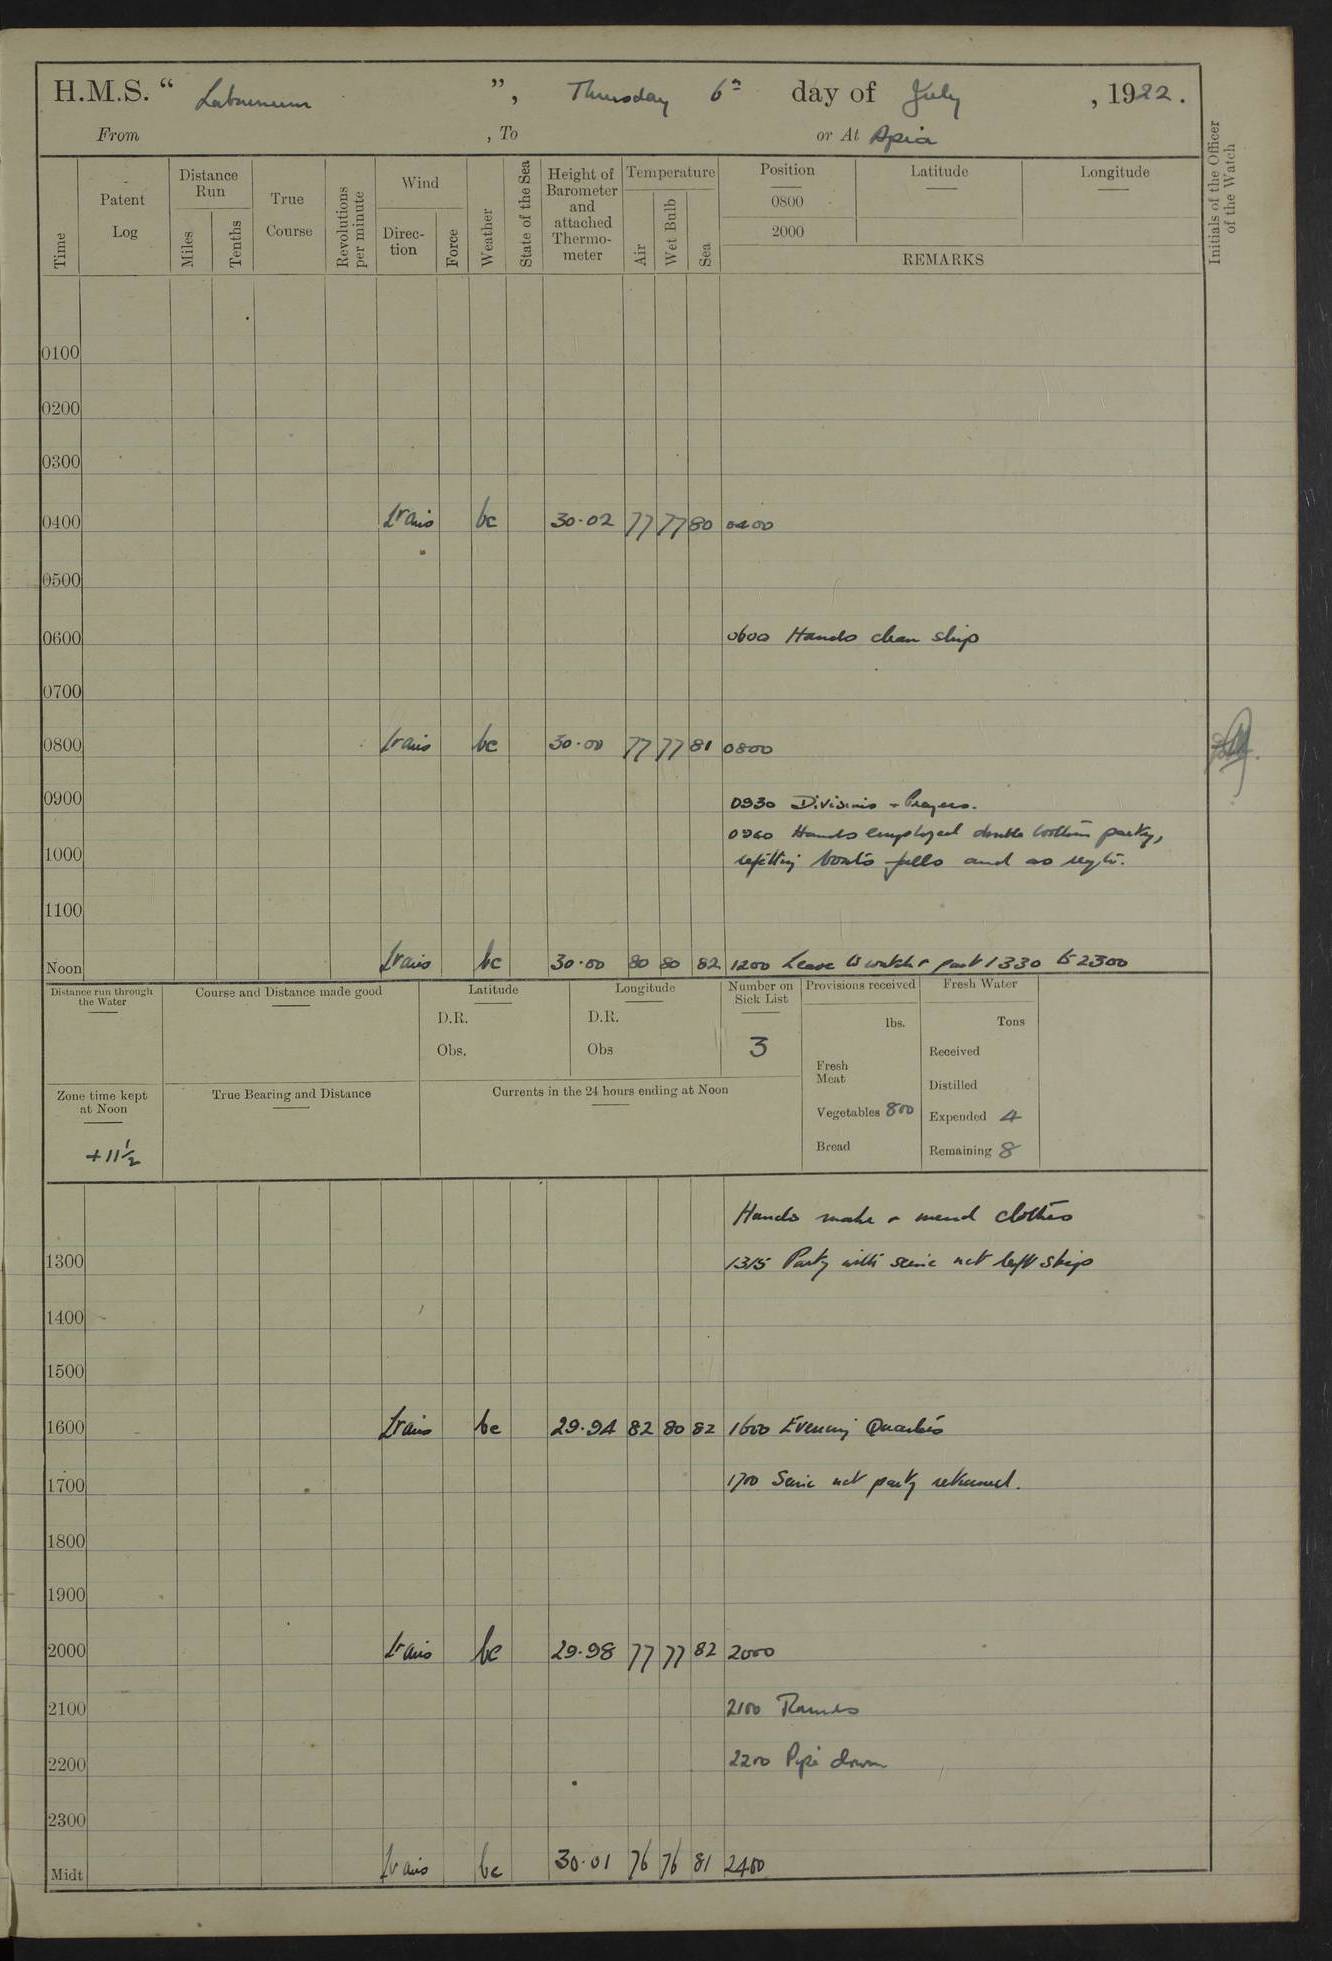 H.M.S. “ Laburnum ”, Thursday 6th day of July , 1922.
From , To or At Apia
Time
Patent Log
Distance Run
Miles
Tenths
True Course
Revolutions per minute
Wind
Direc-tion
Force
Weather
State of the Sea
Height of Barometer and attached Thermo-meter
Temperature
Air
Wet Bulb
Sea
Position
0800
2000
Latitude
Longitude
REMARKS
Initials of the Officer of the Watch
0100
0200
0300
0400 Lt airs bc 30.02 77 77 80 0400
0500
0600 0600 Hands clean ship
0700
0800 Lt airs bc 30.00 77 77 81 0800
0900 0930 Divisions & Prayers.
0940 Hands employed double bottom party,
1000 refitting boats falls and as reqte.
1100
Noon Lt airs bc 30.00 80 80 82 1200 Leave to watch & part 1330 to 2300
Distance run through the Water
Course and Distance made good
Latitude
D.R.
Obs.
Longitude
D.R.
Obs
Number on Sick List
3
Provisions received
lbs.
Fresh Meat
Vegetables 800
Bread
Fresh Water
Tons
Received
Distilled
Expended 4
Remaining 8
Zone time kept at Noon
+11½
True Bearing and Distance
Currents in the 24 hours ending at Noon
Hands make & mend clothes
1300 1315 Party with seine net left ship
1400
1500
1600 Lt airs bc 29.94 82 80 82 1600 Evening Quarters
1700 1700 Seine net party returned.
1800
1900
2000 Lt airs bc 29.98 77 77 82 2000
2100 2100 Rounds
2200 2200 Pipe down
2300
Midt Lt airs bc 30.01 76 76 81 2400